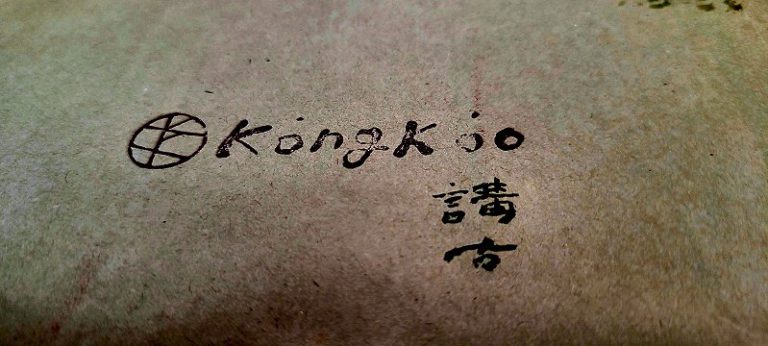 KóngKóo
講
古